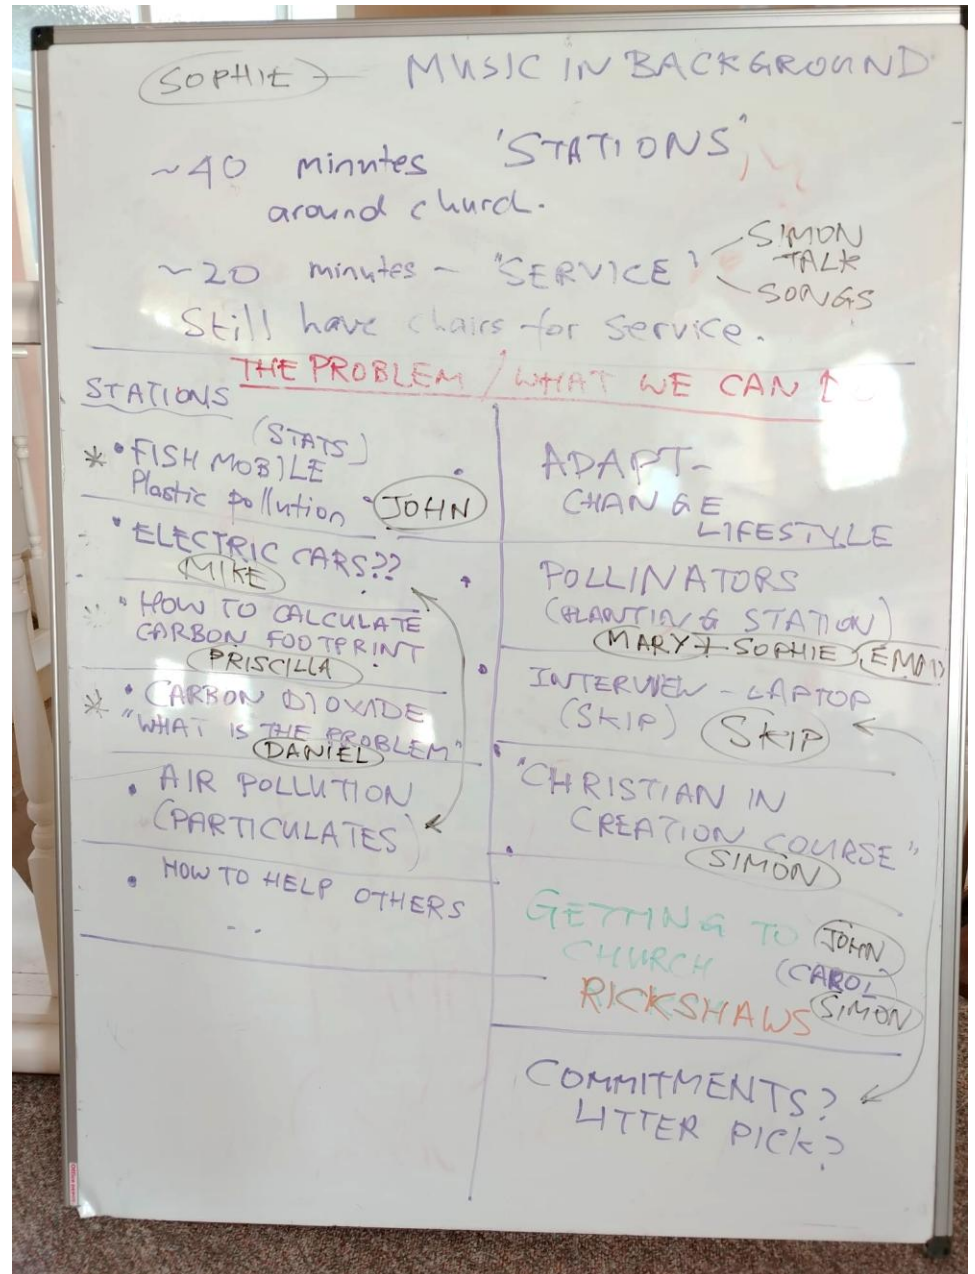 SOPHIE MUSIC IN BACKGROUND
~40 minutes 'STATIONS'
around church.
~20 minutes - "SERVICE"
SIMON
TALK
SONGS
Still have chairs for service.
THE PROBLEM / WHAT WE CAN
STATIONS
(STATS)
* • FISH MOBILE
Plastic pollution
JOHN
• ELECTRIC CARS??
MIKE
• HOW TO CALCULATE
CARBON FOOTPRINT
PRISCILLA
* • CARBON DIOXIDE
"WHAT IS THE PROBLEM"
DANIEL
• AIR POLLUTION
(PARTICULATES)
• HOW TO HELP OTHERS
• ADAPT-
CHANGE
LIFESTYLE
• POLLINATORS
(PLANTING STATION)
MARY + SOPHIE
• INTERVIEW - LAPTOP
(SKIP) SKIP
• "CHRISTIAN IN
CREATION COURSE"
SIMON
• GETTING TO
CHURCH
JOHN
(CAROL
RICKSHAWS SIMON
COMMITMENTS?
LITTER PICK?